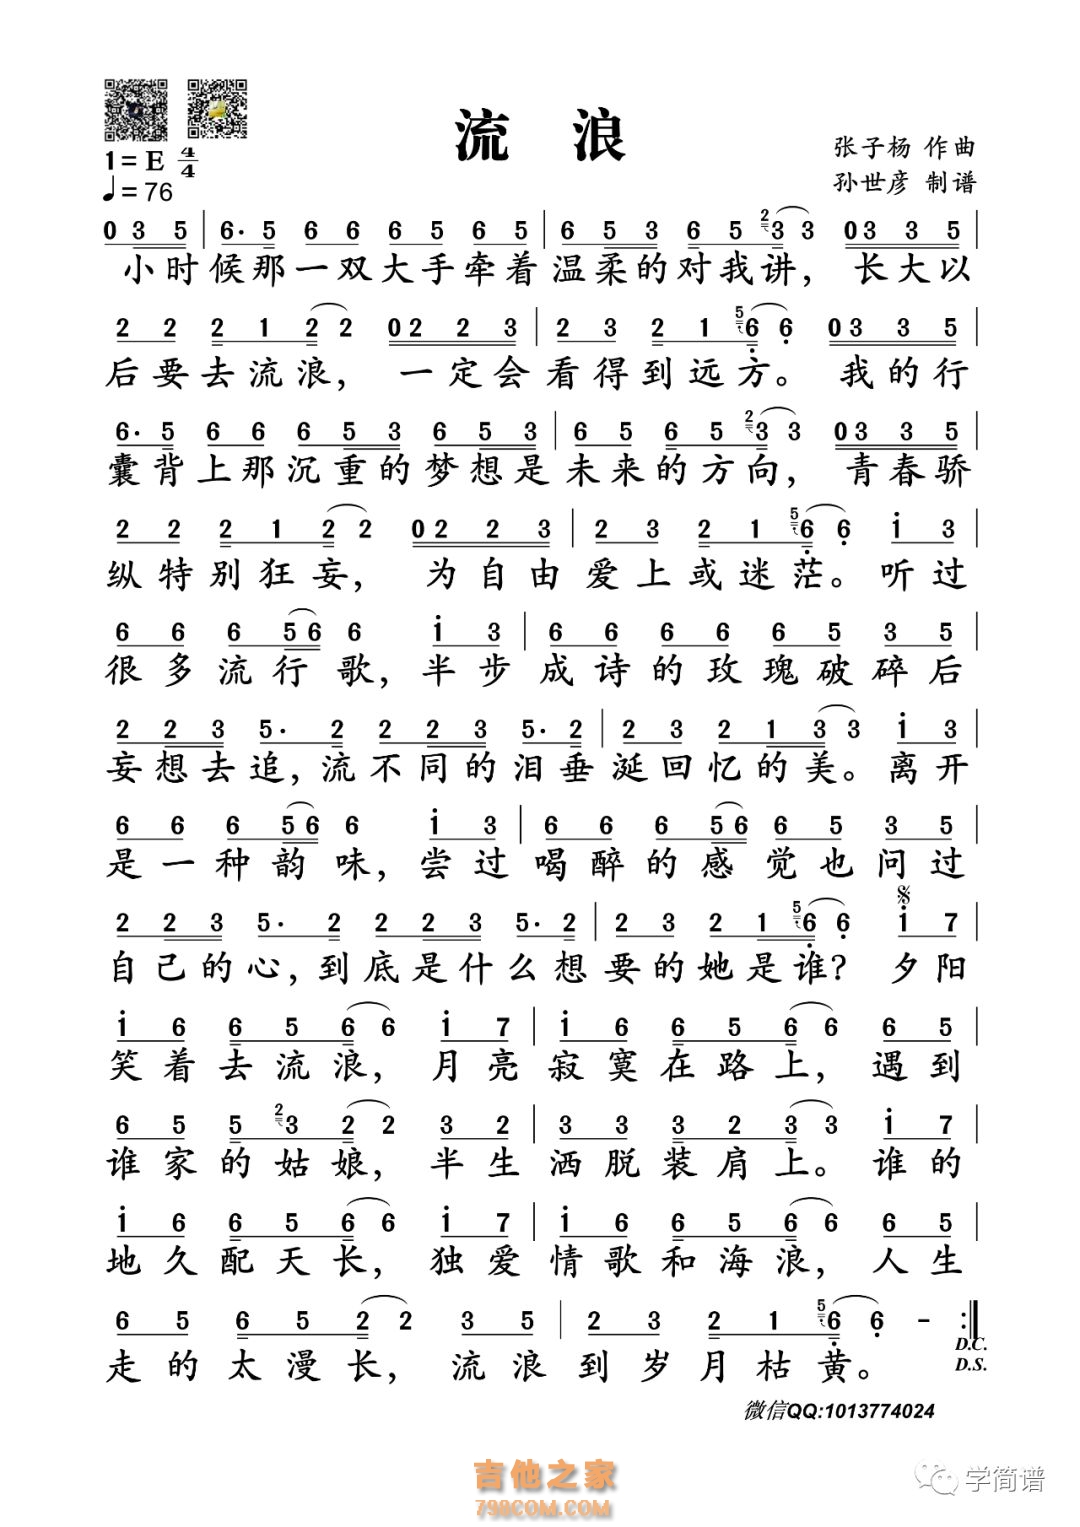 流 浪
1=E 4/4
♩=76
张子杨 作曲
孙世彦 制谱
0 3 5 | 6· 5 6 6 6 5 6 5 | 6 5 3 6 5 2 3 3 0 3 3 5 |
小时候那一双大手牵着温柔的对我讲，长大以
2 2 2 1 2 2 0 2 2 3 | 2 3 2 1 5 6 6 0 3 3 5
后要去流浪，一定会看得到远方。我的行
6· 5 6 6 6 5 3 6 5 3 | 6 5 6 5 2 3 3 0 3 3 5 |
囊背上那沉重的梦想是未来的方向，青春骄
2 2 2 1 2 2 0 2 2 3 | 2 3 2 1 5 6 6 i 3 |
纵特别狂妄，为自由爱上或迷茫。听过
6 6 6 5 6 6 i 3 | 6 6 6 6 6 5 3 5 |
很多流行歌，半步成诗的玫瑰破碎后
2 2 3 5· 2 2 2 3 5· 2 | 2 3 2 1 3 3 i 3 |
妄想去追，流不同的泪垂涎回忆的美。离开
6 6 6 5 6 6 i 3 | 6 6 6 5 6 6 5 3 5 |
是一种韵味，尝过喝醉的感觉也问过
2 2 3 5· 2 2 2 3 5· 2 | 2 3 2 1 5 6 6 i 7 |
自己的心，到底是什么想要的她是谁？夕阳
i 6 6 5 6 6 i 7 | i 6 6 5 6 6 6 5 |
笑着去流浪，月亮寂寞在路上，遇到
6 5 5 2 3 2 2 3 2 | 3 3 3 2 3 3 i 7 |
谁家的姑娘，半生洒脱装肩上。谁的
i 6 6 5 6 6 i 7 | i 6 6 5 6 6 6 5 |
地久配天长，独爱情歌和海浪，人生
6 5 6 5 2 2 3 5 | 2 3 2 1 5 6 6 - :|
走的太漫长，流浪到岁月枯黄。
D.C.
D.S.
微信QQ:1013774024
吉他之家
798COM.COM
学简谱